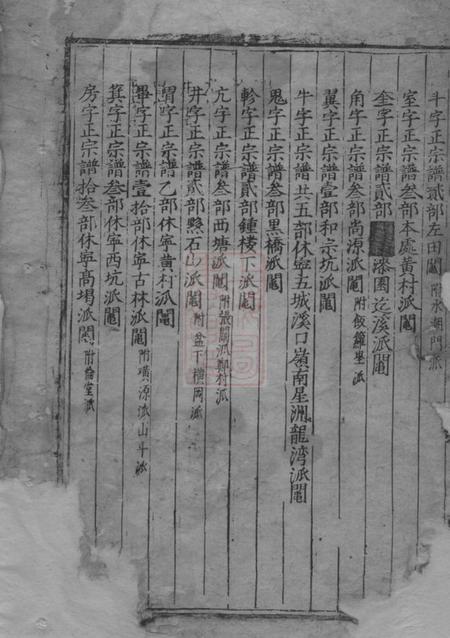 斗字正宗譜貳部左田鬮附水朝門派
室字正宗譜叁部本處黃村派鬮
奎字正宗譜貳部漆園迄溪派鬮
角字正宗譜叁部尚源派鬮附飯籮坵派
翼字正宗譜壹部和宗坑派鬮
牛字正宗譜共五部休寧五城溪口嶺南星洲龍湾派鬮
鬼字正宗譜叁部黑橋派鬮
軫字正宗譜貳部鍾楼下派鬮
亢字正宗譜叁部西塘派鬮附張閣派鄭村派
井字正宗譜貳部黟石山派鬮附盆下橫岡派
胃字正宗譜乙部休寧黄村派鬮
畢字正宗譜壹拾部休寧古林派鬮附璜源派山斗派
箕字正宗譜叁部休寧西坑派鬮
房字正宗譜拾叁部休寧髙場派鬮附倫堂派